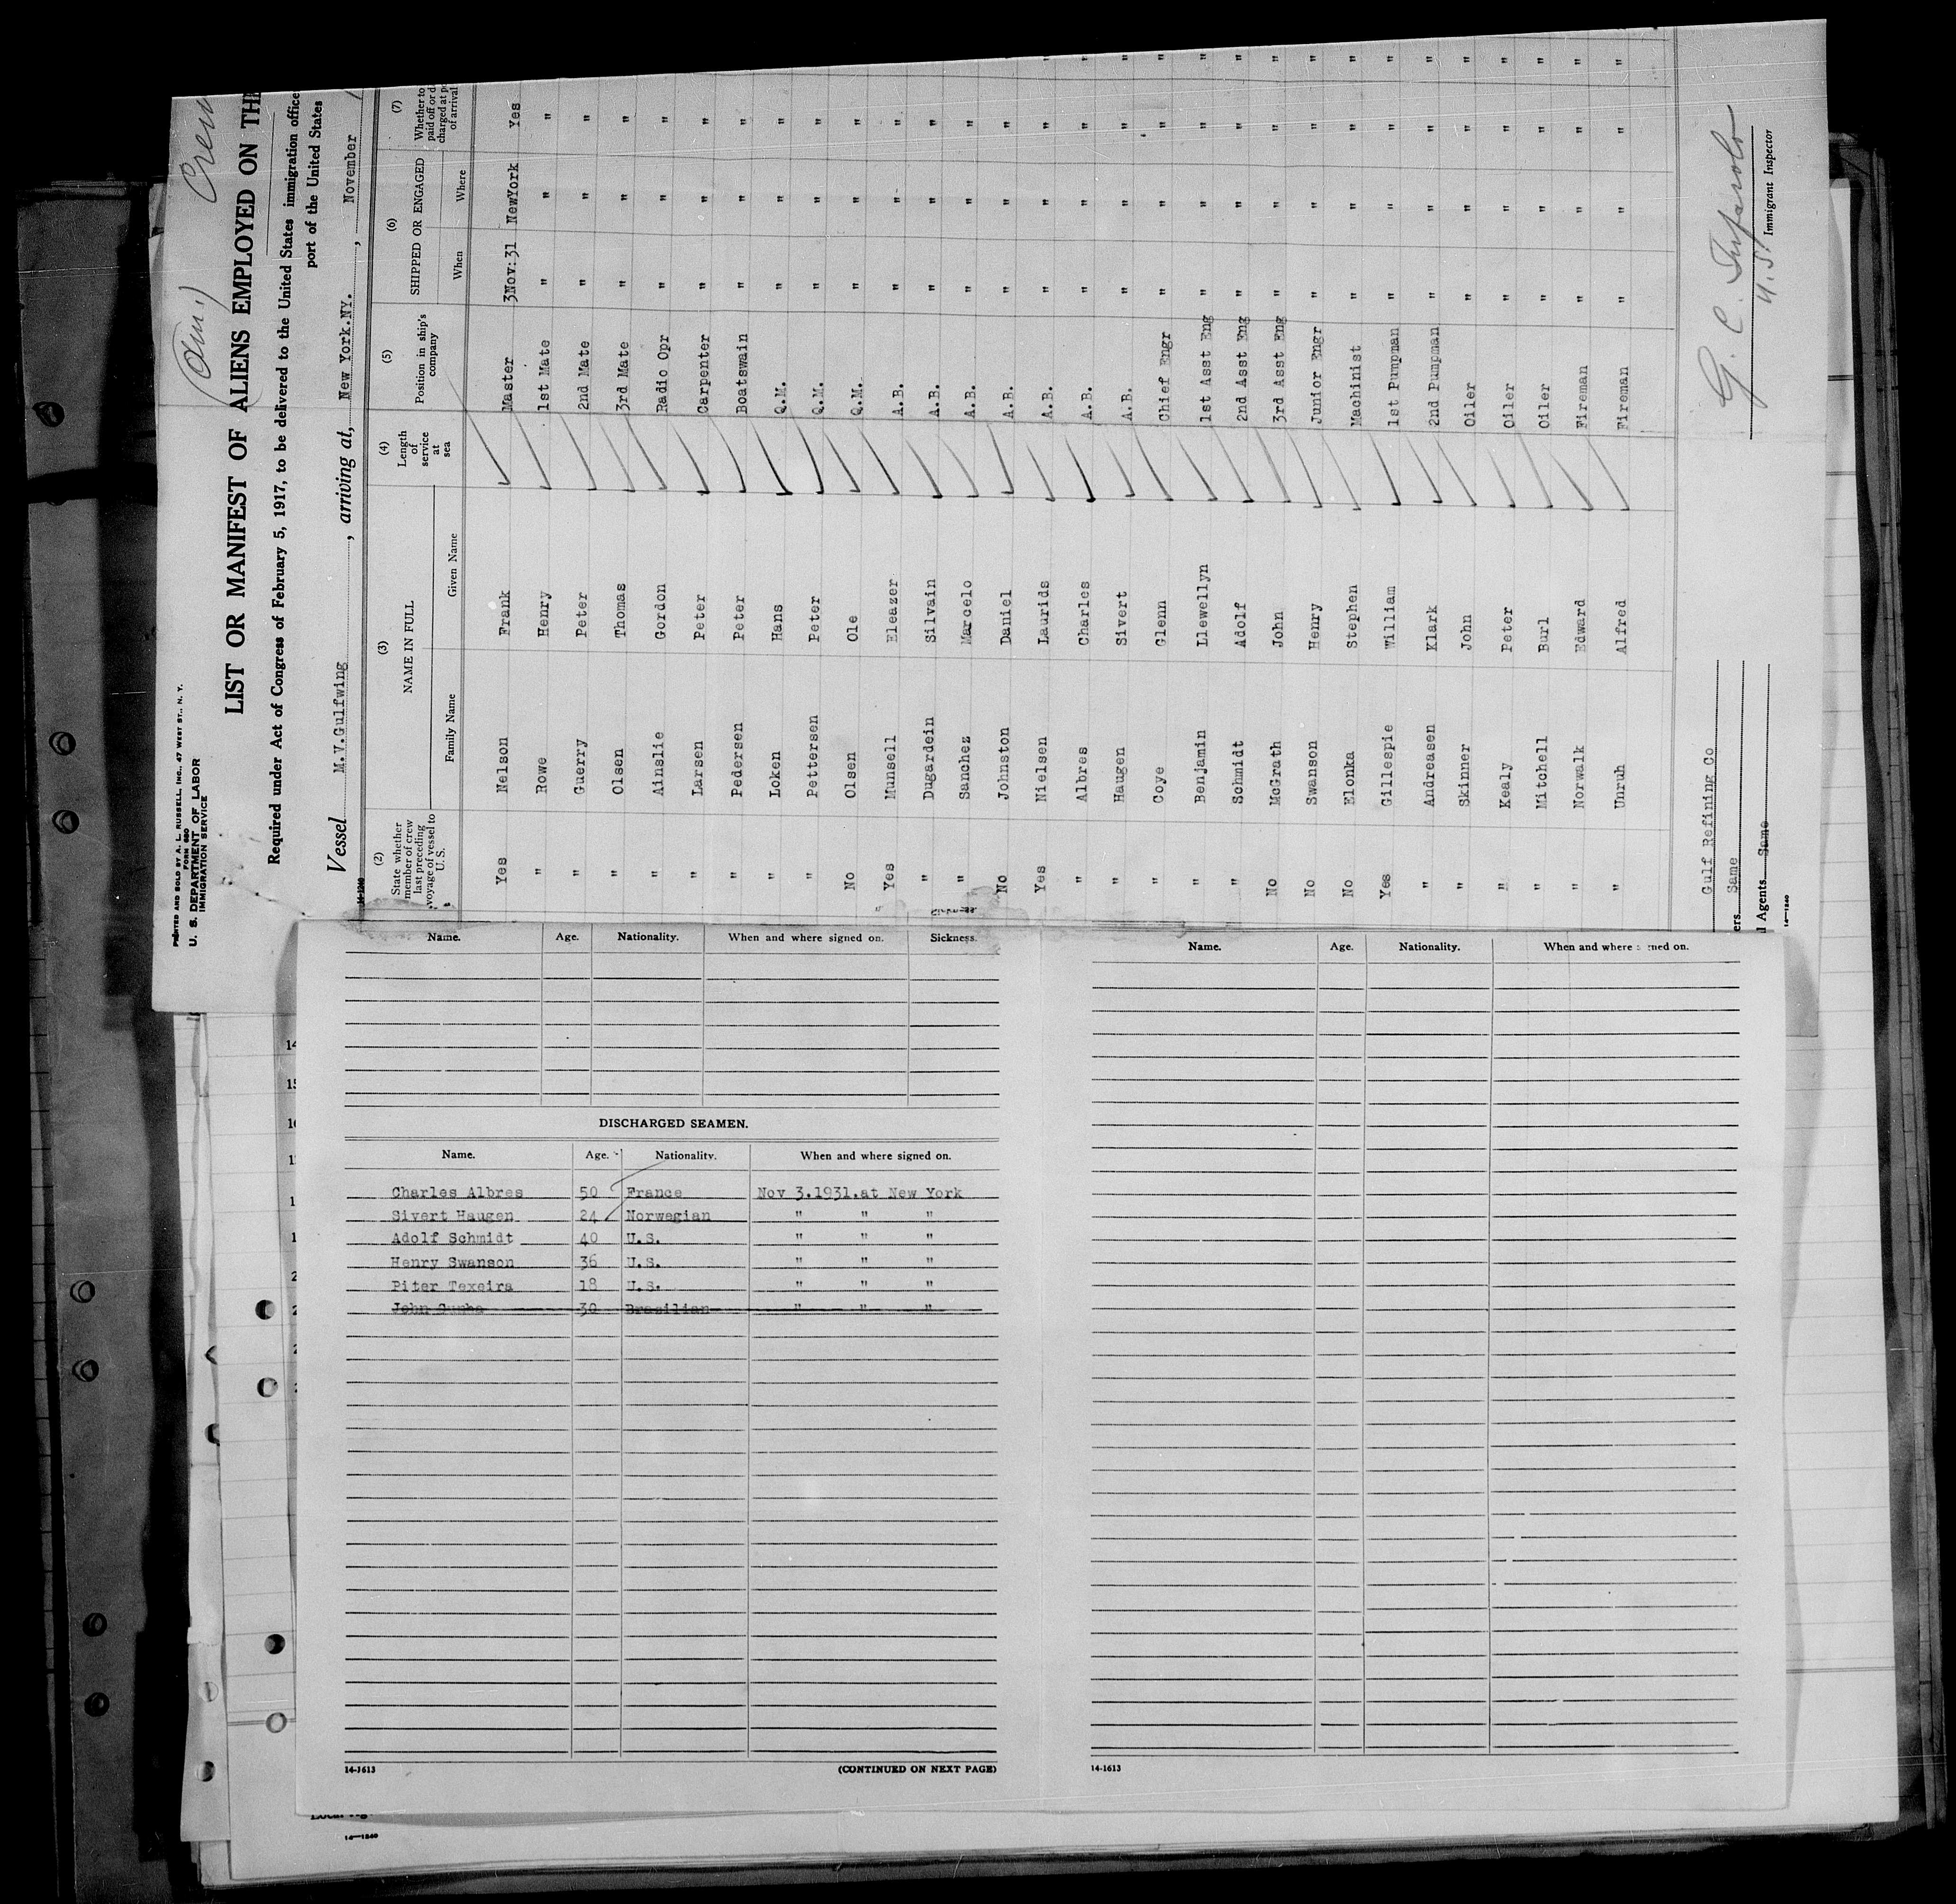 PRINTED AND SOLD BY A. L. RUSSELL, INC., 47 WEST ST., N. Y.
FORM 680
U. S. DEPARTMENT OF LABOR
IMMIGRATION SERVICE
LIST OR MANIFEST OF ALIENS EMPLOYED ON THE
Required under Act of Congress of February 5, 1917, to be delivered to the United States immigration office
port of the United States
Vessel M.V.Gulfwing, arriving at, New York.NY., November
14-1240
(2) State whether member of crew last preceding voyage of vessel to U. S.
(3) NAME IN FULL Family Name Given Name
(4) Length of service at sea
(5) Position in ship's company
(6) SHIPPED OR ENGAGED When Where
(7) Whether to paid off or charged at of arrival
Yes Nelson Frank Master 3Nov:31 NewYork Yes "
" Rowe Henry 1st Mate " " " "
" Guerry Peter 2nd Mate " " " "
" Olsen Thomas 3rd Mate " " " "
" Ainslie Gordon Radio Opr " " " "
" Larsen Peter Carpenter " " " "
" Pedersen Peter Boatswain " " " "
" Loken Hans Q.M. " " " "
" Pettersen Peter Q.M. " " " "
No Olsen Ole Q.M. " " " "
Yes Munsell Eleazer A.B. " " " "
" Dugardein Silvain A.B. " " " "
" Sanchez Marcelo A.B. " " " "
No Johnston Daniel A.B. " " " "
Yes Nielsen Laurids A.B. " " " "
" Albres Charles A.B. " " " "
" Haugen Sivert A.B. " " " "
" Coye Glenn Chief Engr " " " "
" Benjamin Llewellyn 1st Asst Eng " " " "
" Schmidt Adolf 2nd Asst Eng " " " "
No McGrath John 3rd Asst Eng " " " "
No Swanson Henry Junior Engr " " " "
No Elonka Stephen Machinist " " " "
Yes Gillespie William 1st Pumpman " " " "
" Andreasen Klark 2nd Pumpman " " " "
" Skinner John Oiler " " " "
" Kealy Peter Oiler " " " "
" Mitchell Burl Oiler " " " "
" Norwalk Edward Fireman " " " "
" Unruh Alfred Fireman " " " "
Gulf Refining Co
ers Same
l Agents Same
14-1240
G. C.
U.S. Immigrant Inspector
Name. Age. Nationality. When and where signed on. Sickness.
DISCHARGED SEAMEN.
Name. Age. Nationality. When and where signed on.
Charles Albres 50 France Nov 3.1931.at New York
Sivert Haugen 24 Norwegian " " "
Adolf Schmidt 40 U.S. " " "
Henry Swanson 36 U.S. " " "
Piter Texeira 18 U.S. " " "
John Cunha 30 Brasilian " " "
14-1613
(CONTINUED ON NEXT PAGE)
Name. Age. Nationality. When and where signed on.
14-1613
14-1240